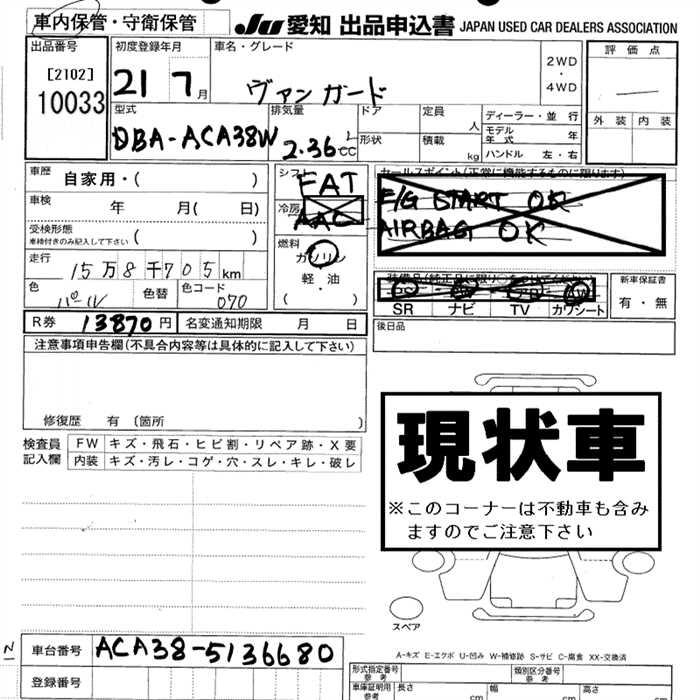 車内保管・守衛保管
JU 愛知 出品申込書 JAPAN USED CAR DEALERS ASSOCIATION
出品番号 初度登録年月 車名・グレード 2WD・4WD 評価点
[2102]
10033
21 7月 ヴァンガード
型式 排気量 ドア 定員 人 ディーラー・並行 外装 内装
モデル年式 年
DBA-ACA38W 2.36 L cc 形状 積載 kg ハンドル 左・右
車歴 自家用・( ) シフト FAT セールスポイント(正常に機能するものに限ります)
車検 年 月( 日) 冷房 AAC E/G START OK
受検形態 車検付きのみ記入して下さい ( ) AIRBAG OK
燃料 ガソリン 軽・油
走行 15万8千705km
色 パール 色替 色コード 070
SR ナビ TV カワシート
新車保証書 有・無
R券 13870円 名変通知期限 月 日 後日品
注意事項申告欄(不具合内容等は具体的に記入して下さい)
修復歴 有 (箇所 )
現状車
※このコーナーは不動車も含み
ますのでご注意下さい
検査員記入欄 FW キズ・飛石・ヒビ割・リペア跡・X要
内装 キズ・汚レ・コゲ・穴・スレ・キレ・破レ
スペア
A-キズ E-エクボ U-凹み W-補修跡 S-サビ C-腐食 XX-交換済
車台番号 ACA38-5136680
登録番号
形式指定番号 参考 類別区分番号 参考
車庫証明用 参考 長さ cm 幅 cm 高さ cm